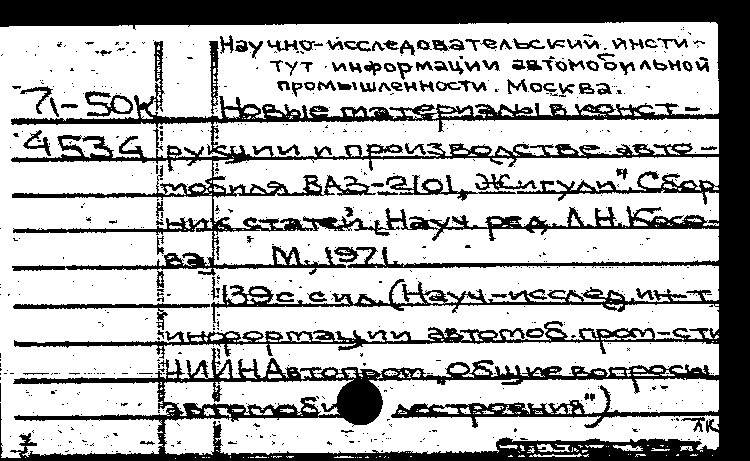 Научно-исследовательский инсти-
тут информации автомобильной
промышленности. Москва.
71-50К Новые материалы в конст-
4534 рукции и производстве авто-
мобиля ВАЗ-2101 „Жигули". Сбор-
ник статей. [Науч. ред. Л.Н. Косо-
ва] М., 1971.
139 с. с ил. (Науч.-исслед. ин-т
информации автомоб. пром-сти
НИИНАвтопром. „Общие вопросы
автомоби лестроения")
ЛК